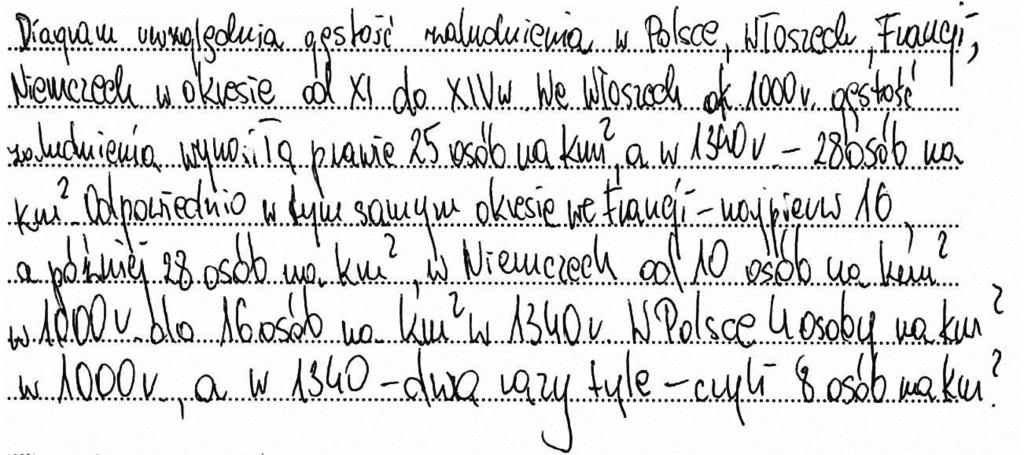 Diagram uwzględnia gęstość zaludnienia w Polsce, Włoszech, Francji,
Niemczech w okresie od XI do XIVw. We Włoszech ok 1000r. gęstość
zaludnienia wynosiła prawie 25 osób na km² a w 1340r – 28 osób na
km². Odpowiednio w tym samym okresie we Francji – najpierw 16,
a później 28 osób na km², w Niemczech od 10 osób na km²
w 1000r. do 16 osób na km² w 1340r. W Polsce 4 osoby na km²
w 1000r., a w 1340 – dwa razy tyle – czyli 8 osób na km².